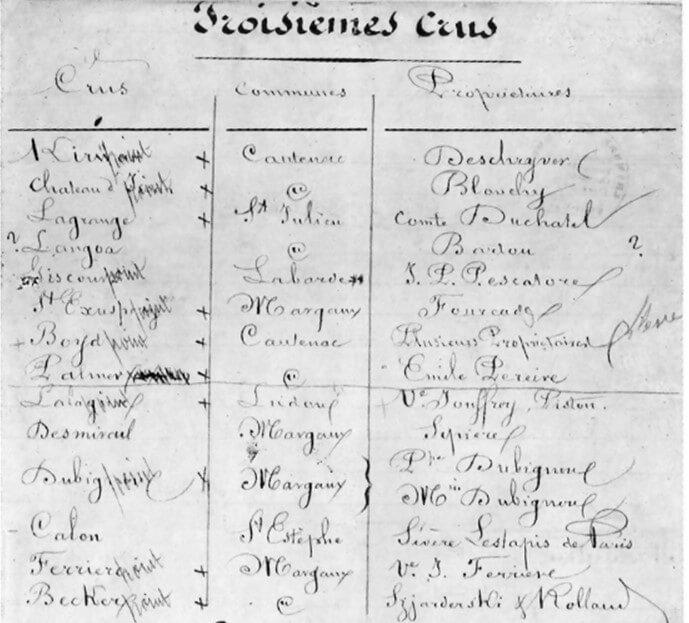 Troisièmes Crus
Crus Communes Propriétaires
Kirw point x Cantenac Deschryver
Chateau d' point x @ Blanchy
Lagrange x St Julien comte Duchatel
? Langoa @ Barton ?
Giscours point Labarde J. P. Pescatore
St Exup point x Margaux Fourcade
+ Boyd point x Cantenac Plusieurs Propriétaires
Palmer @ Emile Péreire
Lalag point x Ludon Ve Jouffroy Piston
Desmirail Margaux Sipière
Dubig point x Margaux } Ppe Dubignon
Min Dubignon
Calon St Estèphe Sivère Lestapis de Paris
Ferrier point x Margaux Ve J. Ferrière
Becker point x @ Szjarderski & Rolland